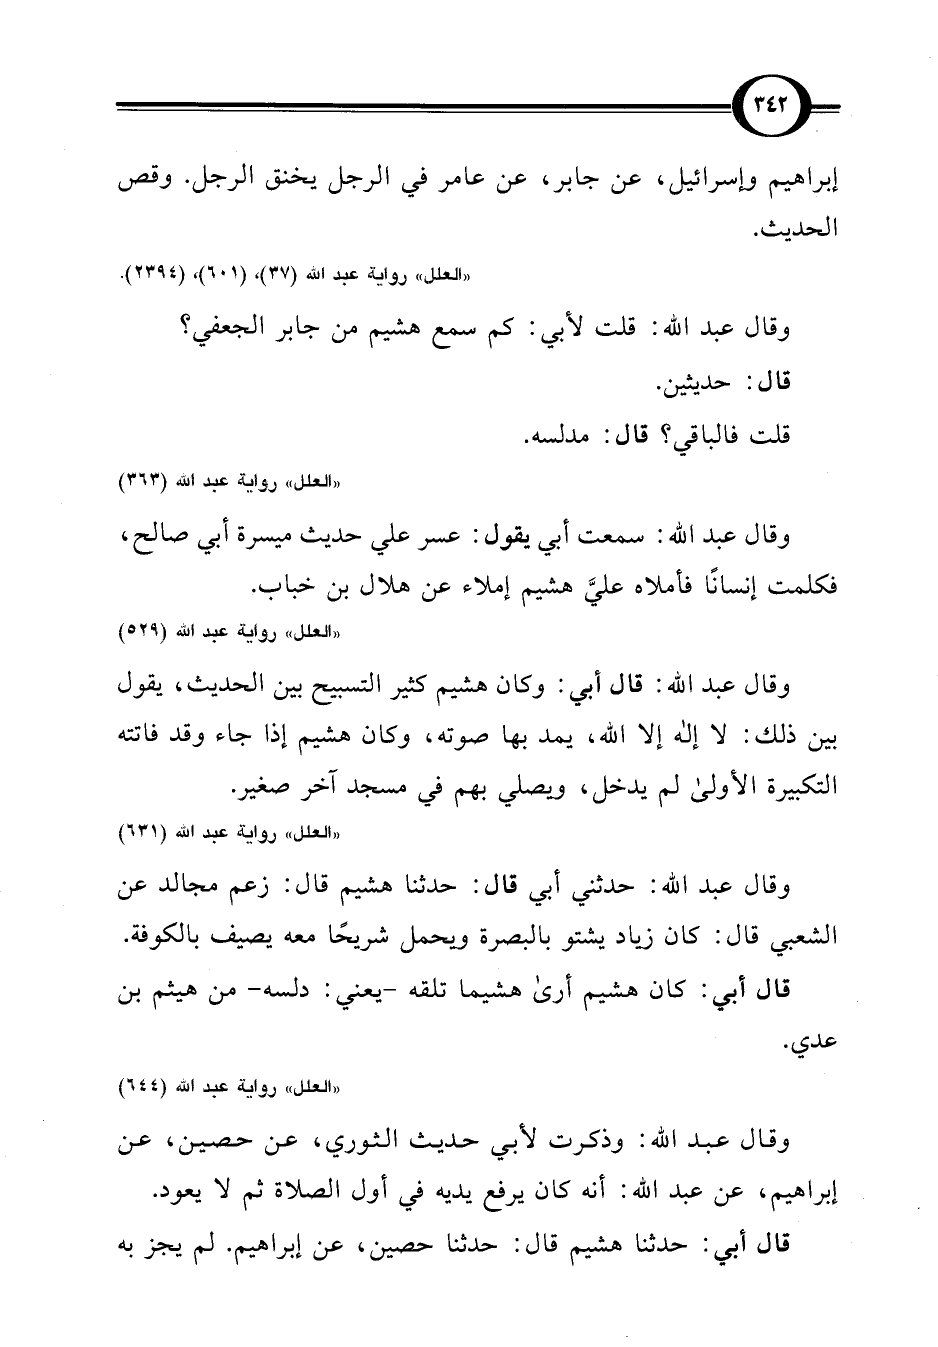 ٣٤٢
إبراهيم وإسرائيل، عن جابر، عن عامر في الرجل يخنق الرجل. وقص
الحديث.
«العلل» رواية عبد الله (٣٧)، (٦٠١)، (٢٣٩٤).
وقال عبد الله: قلت لأبي: كم سمع هشيم من جابر الجعفي؟
قال: حديثين.
قلت فالباقي؟ قال: مدلسه.
«العلل» رواية عبد الله (٣٦٣)
وقال عبد الله: سمعت أبي يقول: عسر علي حديث ميسرة أبي صالح،
فكلمت إنسانًا فأملاه عليَّ هشيم إملاء عن هلال بن خباب.
«العلل» رواية عبد الله (٥٢٩)
وقال عبد الله: قال أبي: وكان هشيم كثير التسبيح بين الحديث، يقول
بين ذلك: لا إلٰه إلا الله، يمد بها صوته، وكان هشيم إذا جاء وقد فاتته
التكبيرة الأولىٰ لم يدخل، ويصلي بهم في مسجد آخر صغير.
«العلل» رواية عبد الله (٦٣١)
وقال عبد الله: حدثني أبي قال: حدثنا هشيم قال: زعم مجالد عن
الشعبي قال: كان زياد يشتو بالبصرة ويحمل شريحًا معه يصيف بالكوفة.
قال أبي: كان هشيم أرىٰ هشيما تلقه -يعني: دلسه- من هيثم بن
عدي.
«العلل» رواية عبد الله (٦٤٤)
وقال عبد الله: وذكرت لأبي حديث الثوري، عن حصين، عن
إبراهيم، عن عبد الله: أنه كان يرفع يديه في أول الصلاة ثم لا يعود.
قال أبي: حدثنا هشيم قال: حدثنا حصين، عن إبراهيم. لم يجز به